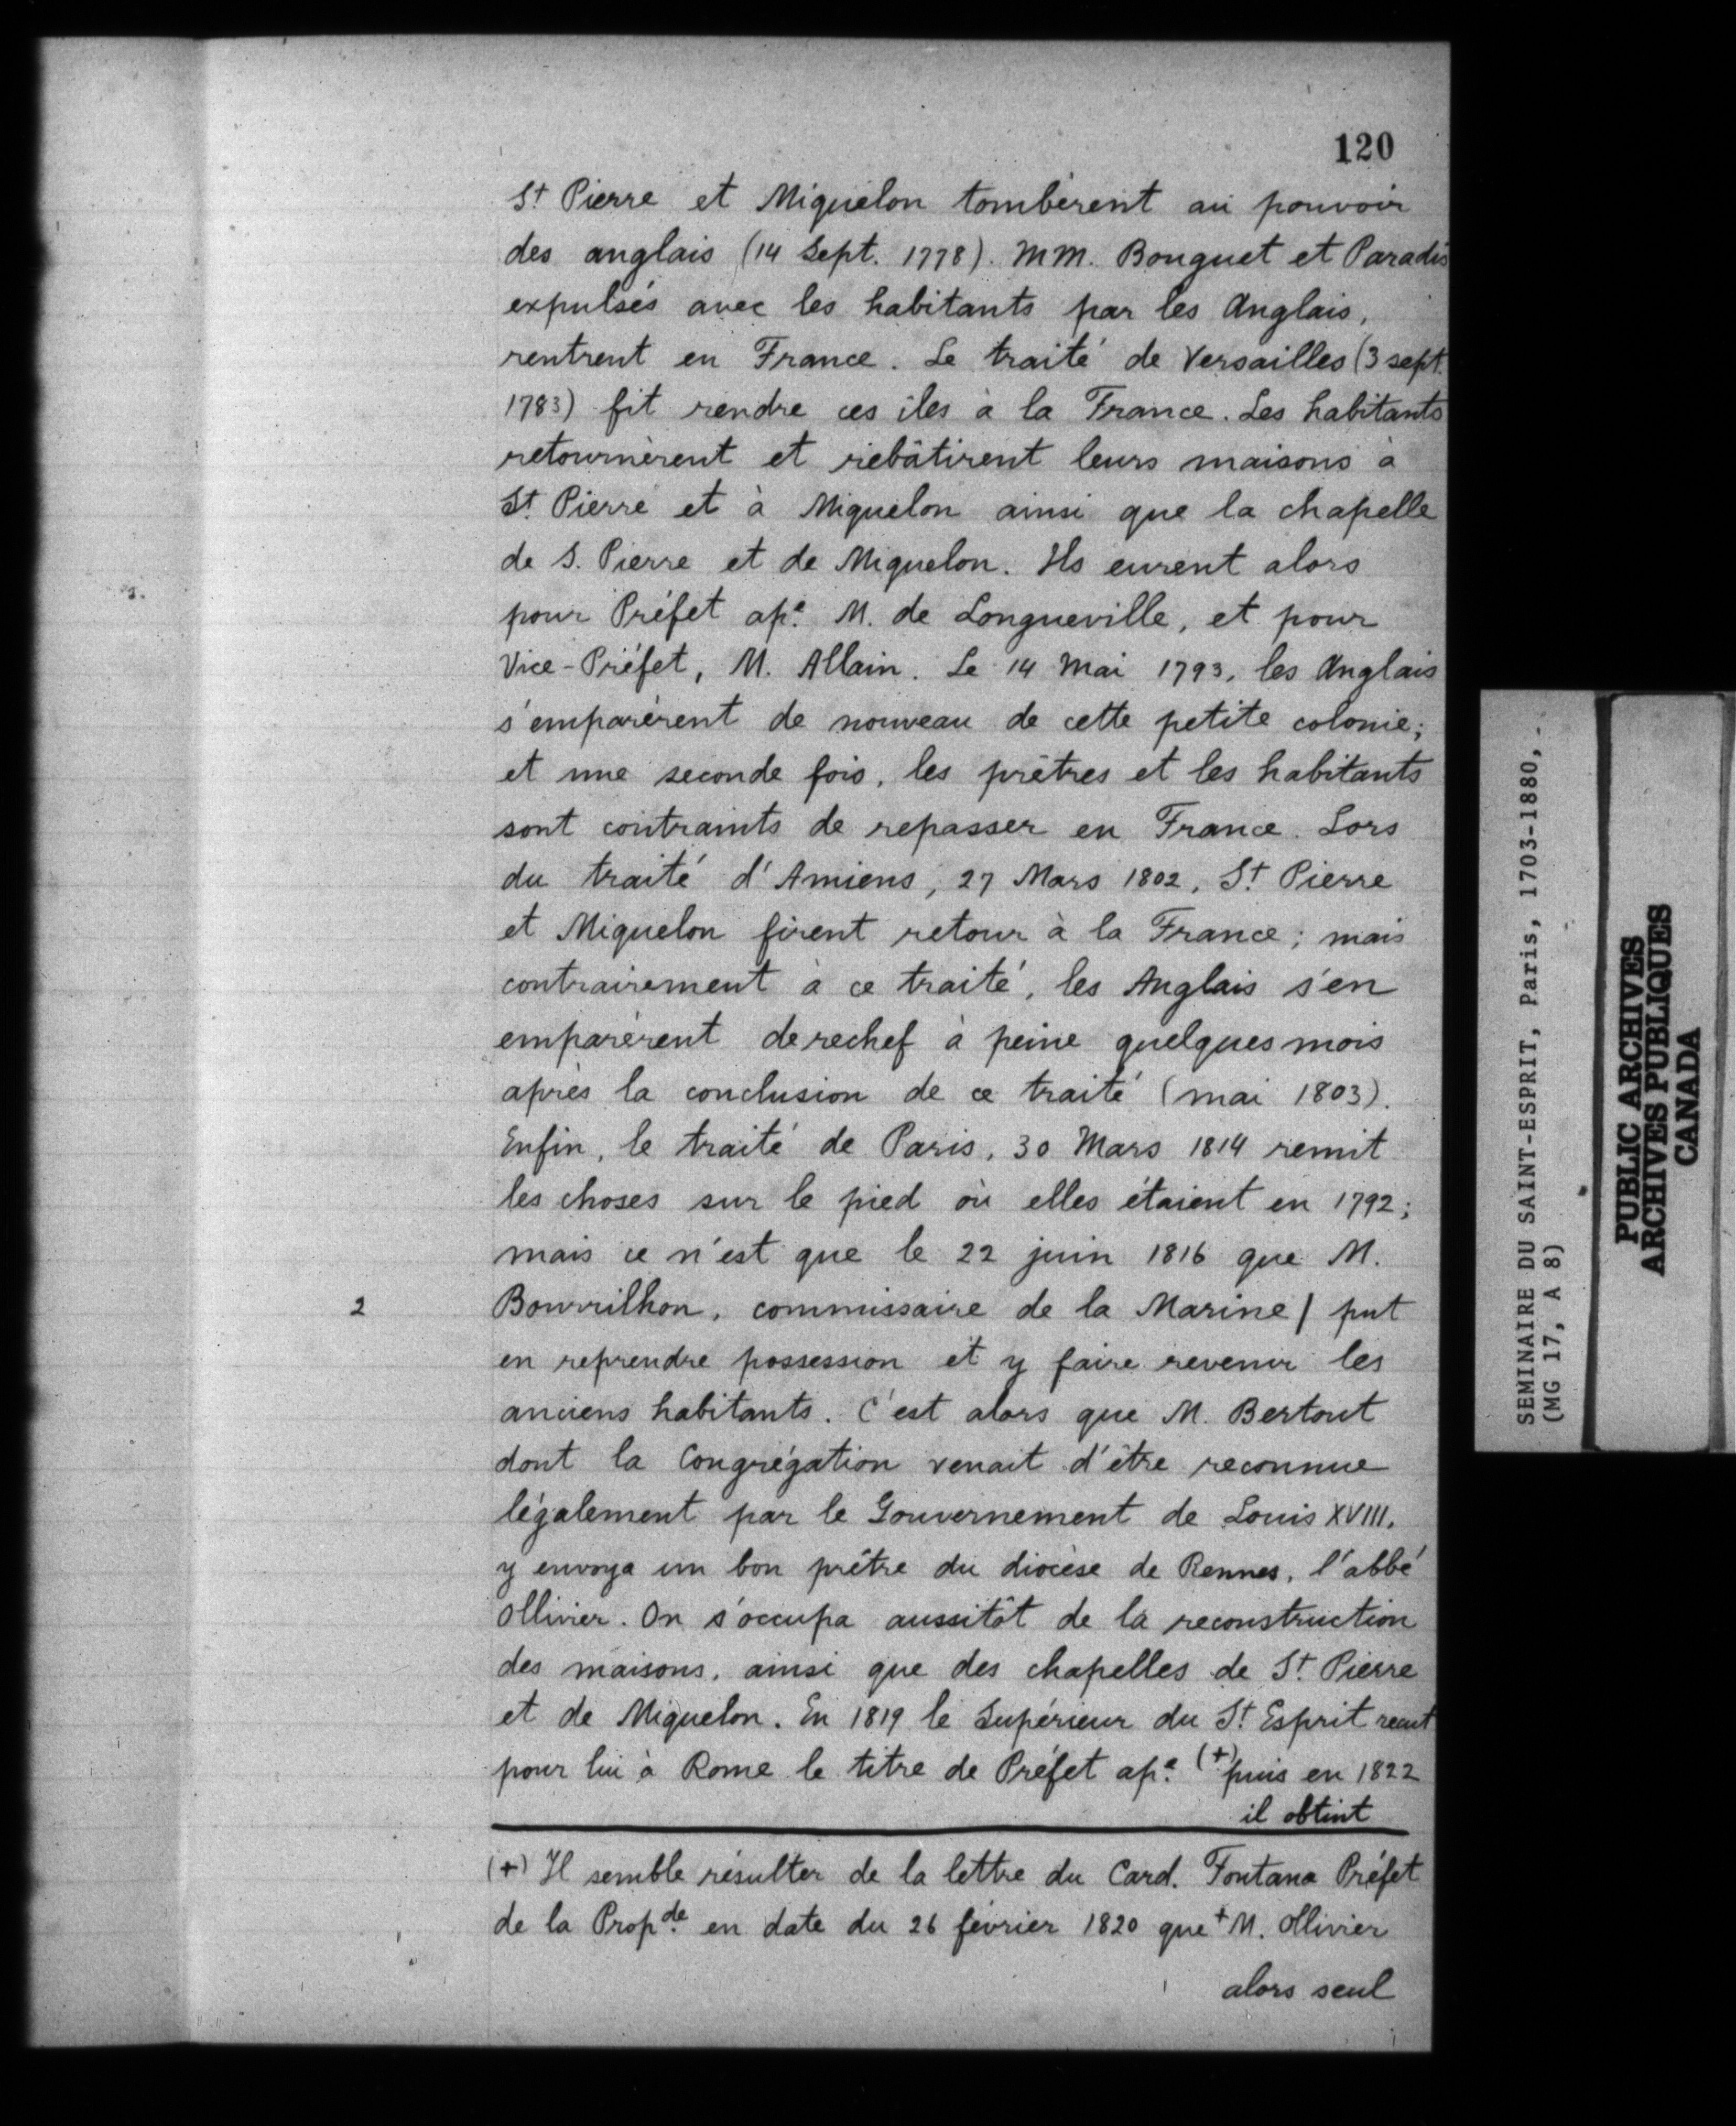 120
St Pierre et Miquelon tombèrent au pouvoir
des anglais (14 Sept. 1778). MM. Bouguet et Paradis
expulsés avec les habitants par les Anglais,
rentrent en France. Le traité de Versailles (3 sept.
1783) fit rendre ces îles à la France. Les habitants
retournèrent et rebâtirent leurs maisons à
St Pierre et à Miquelon ainsi que la chapelle
de S. Pierre et de Miquelon. Ils eurent alors
pour Préfet ap.e M. de Longueville, et pour
Vice-Préfet, M. Allain. Le 14 Mai 1793, les Anglais
s'emparèrent de nouveau de cette petite colonie;
et une seconde fois, les prêtres et les habitants
sont contraints de repasser en France. Lors
du traité d'Amiens, 27 Mars 1802, St Pierre
et Miquelon firent retour à la France; mais
contrairement à ce traité, les Anglais s'en
emparèrent derechef à peine quelques mois
après la conclusion de ce traité (mai 1803).
Enfin, le traité de Paris, 30 Mars 1814 remit
les choses sur le pied où elles étaient en 1792;
mais ce n'est que le 22 juin 1816 que M.
2 Bourrilhon, commissaire de la Marine / put
en reprendre possession et y faire revenir les
anciens habitants. C'est alors que M. Bertout
dont la Congrégation venait d'être reconnue
légalement par le Gouvernement de Louis XVIII,
y envoya un bon prêtre du diocèse de Rennes, l'abbé
Ollivier. On s'occupa aussitôt de la reconstruction
des maisons, ainsi que des chapelles de St Pierre
et de Miquelon. En 1819 le Supérieur du St Esprit recut
pour lui à Rome le titre de Préfet ap.e (+) puis en 1822
il obtint
(+) Il semble résulter de la lettre du Card. Fontana Préfet
de la Prop.de en date du 26 février 1820 que + M. Ollivier
alors seul
SEMINAIRE DU SAINT-ESPRIT, Paris, 1703-1880, -
(MG 17, A 8)
PUBLIC ARCHIVES
ARCHIVES PUBLIQUES
CANADA